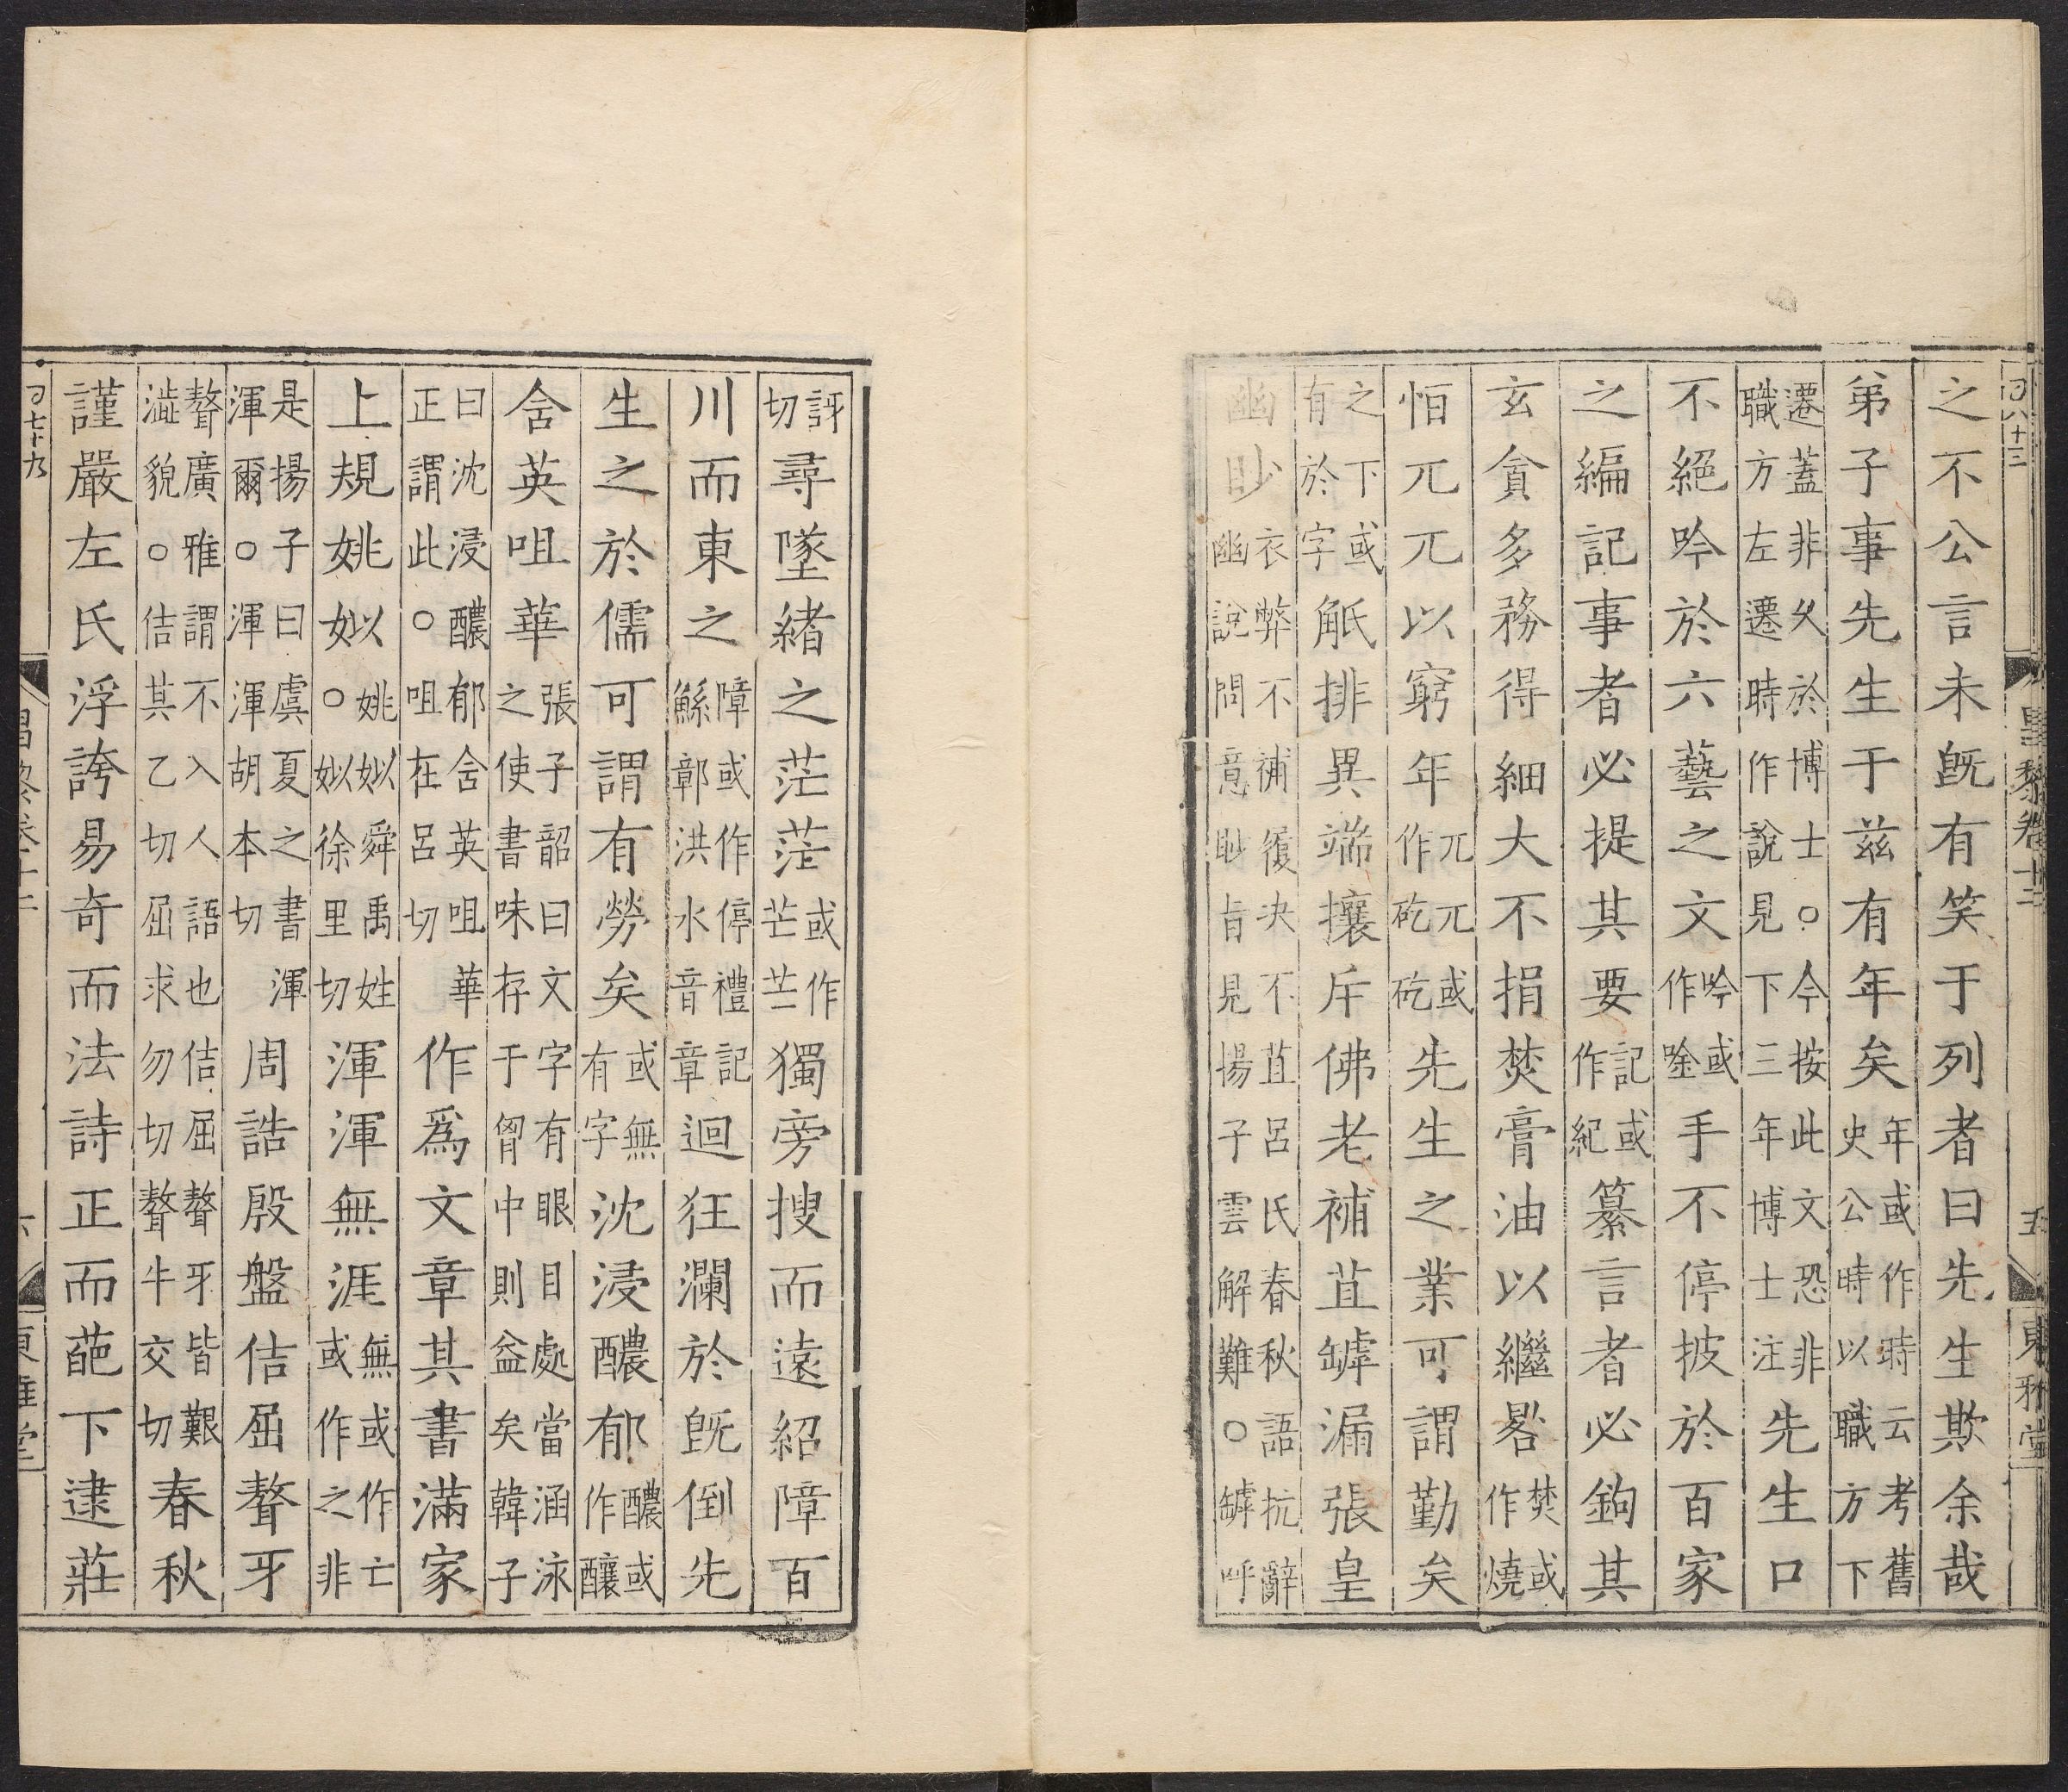 昌黎卷十二 五 東雅堂
之不公言未既有笑于列者曰先生欺余哉
弟子事先生于兹有年矣年或作時云考舊史公時以職方下
遷蓋非久於博士○今按此文恐非職方左遷時作說見下三年博士注先生口
不絕吟於六藝之文吟或作唫手不停披於百家
之編記事者必提其要記或作紀纂言者必鉤其
玄貪多務得細大不捐焚膏油以繼晷焚或作燒
恒兀兀以窮年兀兀或作矻矻先生之業可謂勤矣
之下或有於字觝排異端攘斥佛老補苴罅漏張皇
幽眇衣弊不補履決不苴呂氏春秋語抗辭幽說問意眇旨見揚子雲解難○罅呼
訝切尋墜緒之茫茫或作芒芒獨旁搜而遠紹障百
川而東之障或作停禮記鯀鄣洪水音章迴狂瀾於既倒先
生之於儒可謂有勞矣或無有字沈浸醲郁醲或作釀
含英咀華張子韶曰文字有眼目處當涵泳之使書味存于胷中則益矣韓子
曰沈浸醲郁含英咀華正謂此○咀在呂切作爲文章其書滿家
上規姚姒姚姒舜禹姓○姒徐里切渾渾無涯無或作亡或作之非
是揚子曰虞夏之書渾渾爾○渾渾胡本切周誥殷盤佶屈聱牙
聱廣雅謂不入人語也佶屈聱牙皆艱澁貌○佶其乙切屈求勿切聱牛交切春秋
謹嚴左氏浮誇易奇而法詩正而葩下逮莊
昌黎卷十二 六 東雅堂